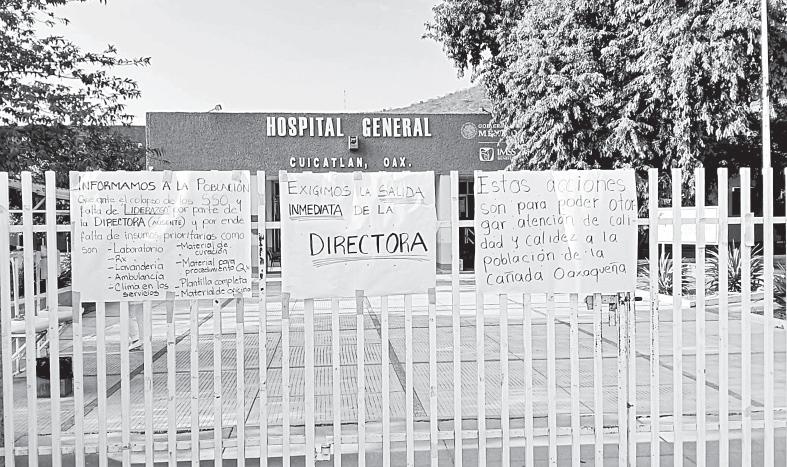 HOSPITAL GENERAL
CUICATLAN, OAX.
GOBIERNO
MÉXICO
IMSS
INFORMAMOS A LA POBLACIÓN
Que ante el colapso de los SSO y
falta de LIDERAZGO por parte de
la DIRECTORA (AUSENTE) y por ende
falta de insumos prioritarios como
son - Laboratorio - Material de curación
- Rx - Material para procedimiento Qx
- Lavandería
- Ambulancia - Plantilla completa
- Clima en los servicios - Material de oficina
EXIGIMOS LA SALIDA
INMEDIATA DE LA
DIRECTORA
Estas acciones
son para poder otor
gar atención de cali
dad y calidez a la
población de la
Cañada Oaxaqueña